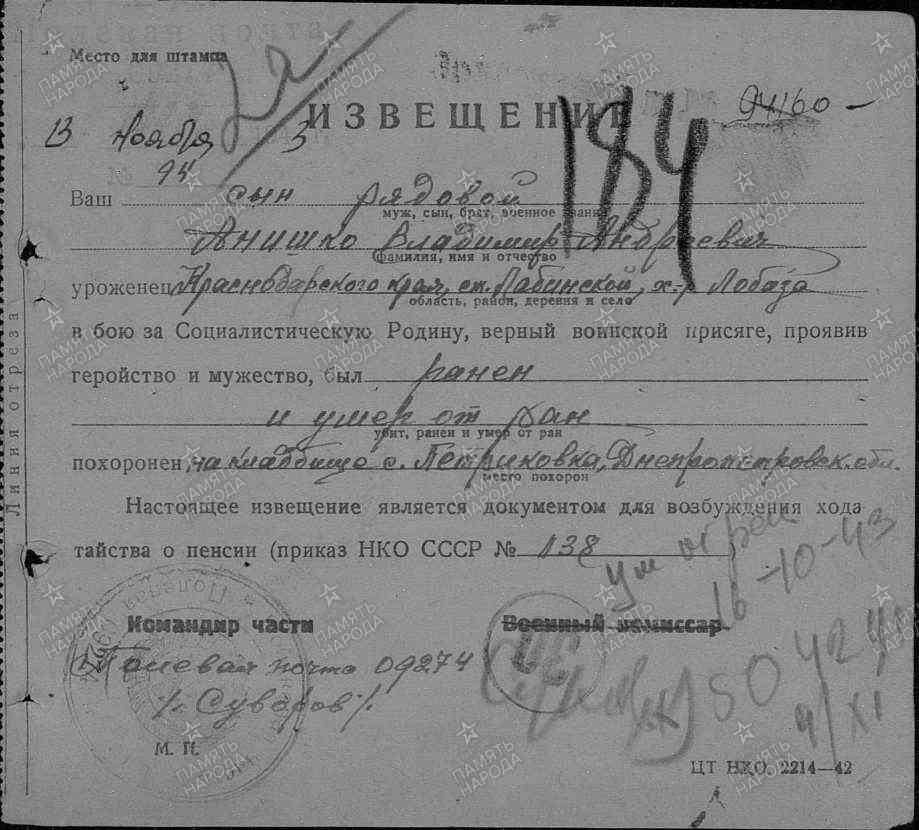 Место для штампа
2а
ИЗВЕЩЕНИЕ
184
94160 –
13 Ноября 3
194
Ваш сын рядовой
муж, сын, брат, военное звание
Анишко Владимир Андреевич
фамилия, имя и отчество
уроженец Краснодарского края, ст. Лабинской, х-р Лобода
область, район, деревня и село
в бою за Социалистическую Родину, верный воинской присяге, проявив
геройство и мужество, был ранен
и умер от ран
убит, ранен и умер от ран
похоронен на кладбище с. Петриковка, Днепропетровск. обл.
место похорон
Настоящее извещение является документом для возбуждения хода
тайства о пенсии (приказ НКО СССР № 138
)
ум от ран
16-10-43
Командир части
Военный комиссар
Полевая почта 09274
/. Суворов /.
50424
4/XI
М. П.
ЦТ НКО. 2214—42
Линия отреза
ПАМЯТЬ НАРОДА